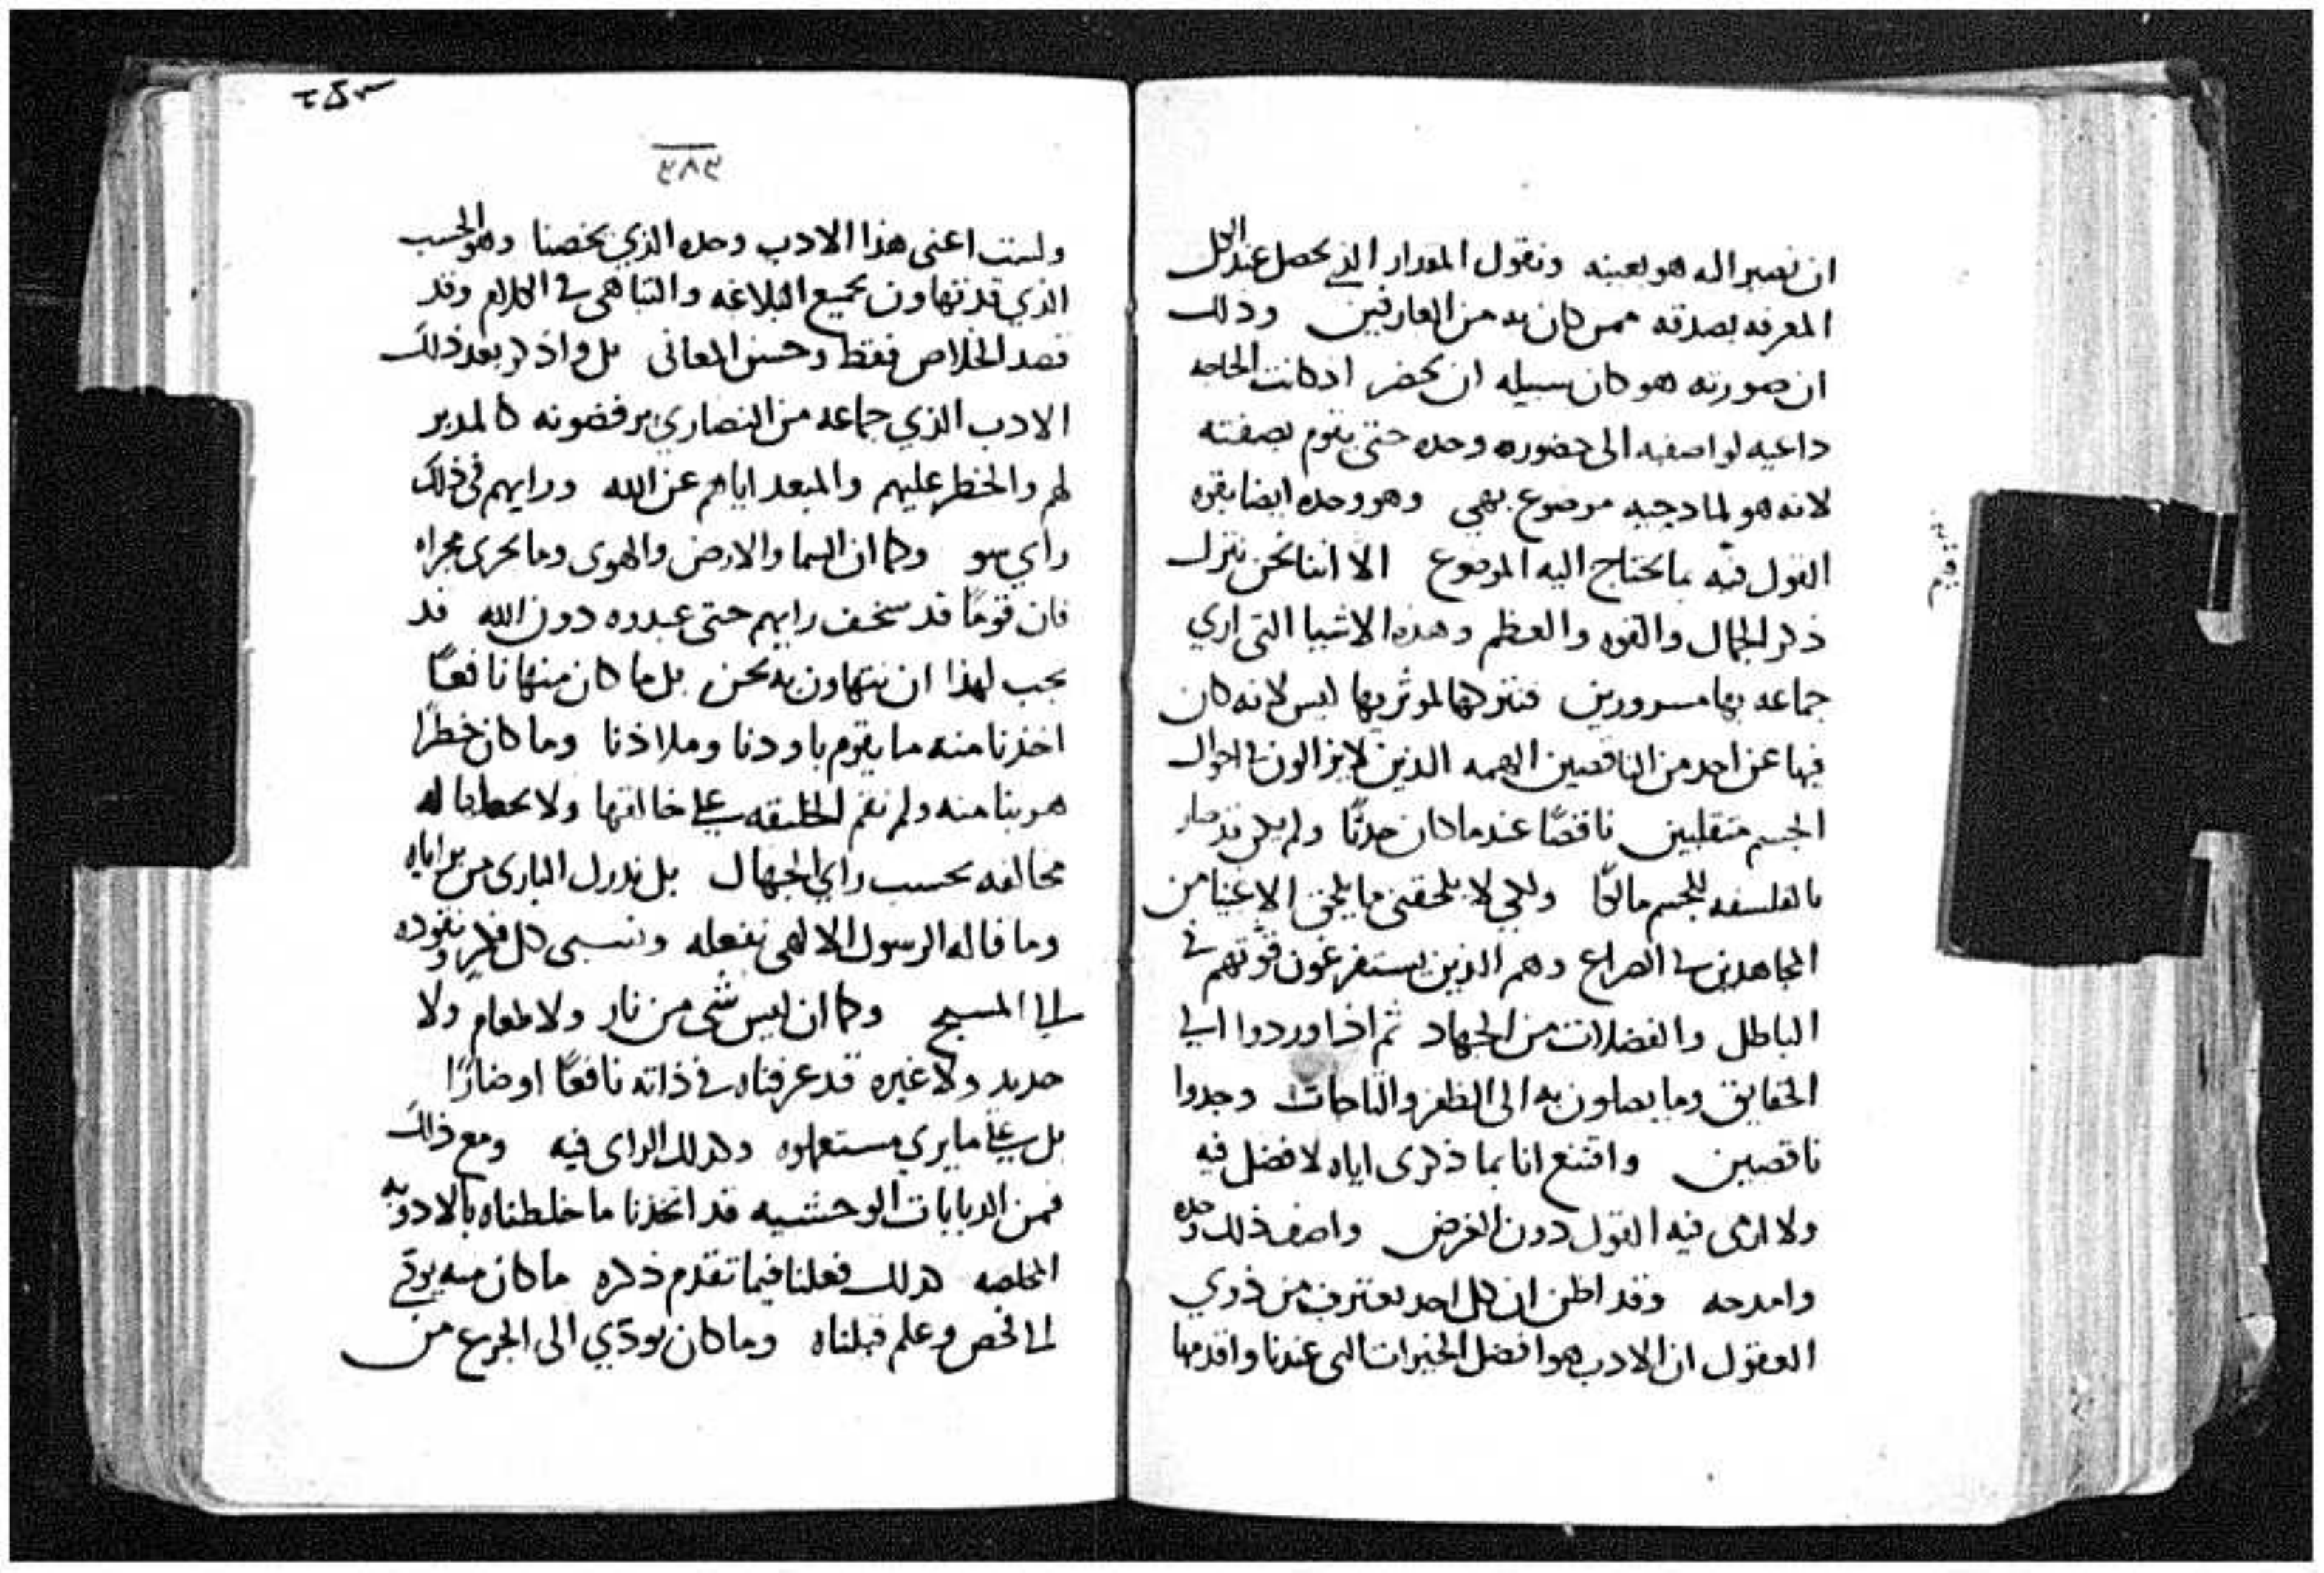 ان نصير اله هو بعينه ونقول المقدار الذي يحصل عند الكل
المعرفه بصدقه ممن كان به من العارفين وذلك
ان صورته هو كان سبيله ان يحضر اذ كانت الحاجه
داعيه لواصفيه الى حضوره وحده حتى يقوم بصفته
لانه هو لمادحيه موضوع بهي وهو وحده ايضا بقوه
القول فيه بما يحتاج اليه الموضوع الا اننا نحن نترك
ذكر الجمال والقوه والعظم وهذه الاشيا التي اري
جماعه بها مسرورين فنتركها لموثريها ليس لانه كان
فيها عن احد من الناقصين الهمه الذين لايزالون في احوال
الجسم متقلبين ناقصًا عندما كان حدثًا ولم يكن قد صار
بالفلسفه للجسم مالكًا ولكي لا يلحقني ما يلحق الاغنيا من
المجاهدين في الصراع وهم الذين يستفرغون قوتهم في
الباطل والفضلات من الجهاد ثم اذا وردوا الى
الحقايق وما يصلون به الى الظفر والتاجات وجدوا
ناقصين واقتنع انا بما ذكرى اياه لا فضل فيه
ولا ارى فيه القول دون الغرض واصف ذلك وحده
وامدحه وقد اظن ان كل احد يعترف من ذوي
العقول ان الادب هو افضل الخيرات التي عندنا واقدمها
٢٤٣
٤٨٤
ولست اعنى هذا الادب وحده الذي يخصنا وهو الحسب
الذي قد تهاون بجميع البلاغه والتباهى في الكلام وقد
قصد الخلاص فقط وحسن المعانى بل واذكر بعد ذلك
الادب الذي جماعه من النصارى يرفضونه كالمدبر
لهم والخطر عليهم والمبعد اياهم عن الله ورايهم فى ذلك
راي سو وكما ان السما والارض والهوى وما يجرى مجراه
فان قومًا قد سخف رايهم حتى عبدوه دون الله قد
يجب لهذا ان نتهاون به نحن بل ما كان منها نافعًا
اخذنا منه ما يقوم باودنا وملاذنا وما كان خطرًا
هربنا منه ولم نقم الخليقه على خالقها ولا جعلناها له
مخالفه بحسب راي الجهال بل ندرك البارى من براياه
وما قاله الرسول الالهى نفعله ونسبى كل فكر ونقوده
الى المسيح وكما ان ليس شى من نار ولا طعام ولا
حديد ولا غيره قد عرفناه في ذاته نافعًا او ضارًا
بل على ما يري مستعملوه وكذلك الراى فيه ومع ذلك
فمن الدبابات الوحشيه قد اتخذنا ما خلطناه بالادويه
المخلصه كذلك فعلنا فيما تقدم ذكره ما كان منه يودي
الى فحص وعلم قبلناه وما كان يودي الى الجرع من